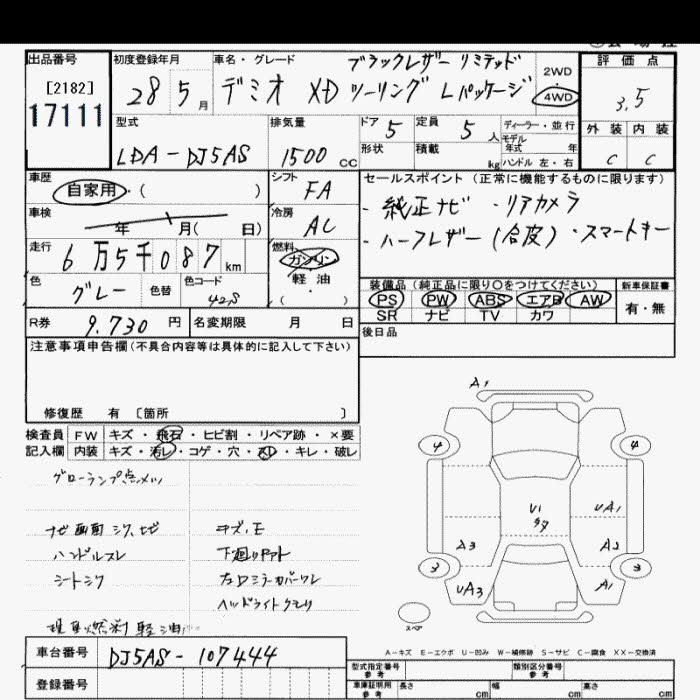 出品番号
[2182]
17111
初度登録年月
28 5 月
車名・グレード
ブラックレザー リミテッド
デミオ XD ツーリング Lパッケージ
2WD
4WD
評価点
3.5
外装 内装
C C
型式
LDA-DJ5AS
排気量
1500 cc
ドア 5
定員 5 人
形状
積載 kg
ディーラー・並行
モデル
年式 年
ハンドル 左・右
車歴
自家用・( )
シフト
FA
車検
年 月( 日)
冷房
AC
走行
6万5千087 km
燃料
ガソリン
軽油
( )
色
グレー
色替
色コード
42S
セールスポイント (正常に機能するものに限ります)
・純正ナビ ・リアカメラ
・ハーフレザー(合皮) ・スマートキー
装備品(純正品に限り○をつけてください)
PS PW ABS エアB AW
SR ナビ TV カワ
新車保証書
有・無
R券 9.730 円
名変期限 月 日
後日品
注意事項申告欄(不具合内容等は具体的に記入して下さい)
修復歴 有 〔箇所 〕
検査員 FW キズ・飛石・ヒビ割・リペア跡・×要
記入欄 内装 キズ・汚レ・コゲ・穴・スレ・キレ・破レ
グローランプ点メツ
ナビ画面シワ、セビ
ハンドルスレ
シートシワ
キズ、E
下廻りサビ
左ドミラーカバーワレ
ヘッドライトクモリ
現車燃料 軽油
A1
4
4
U1
UA1
A3
A2
3
3
UA3
A1
スペア
A-キズ E-エクボ U-凹み W-補修跡 S-サビ C-腐食 XX-交換済
車台番号 DJ5AS-107444
登録番号
型式指定番号
参考
類別区分番号
参考
車庫証明用
参考
長さ cm
幅 cm
高さ cm